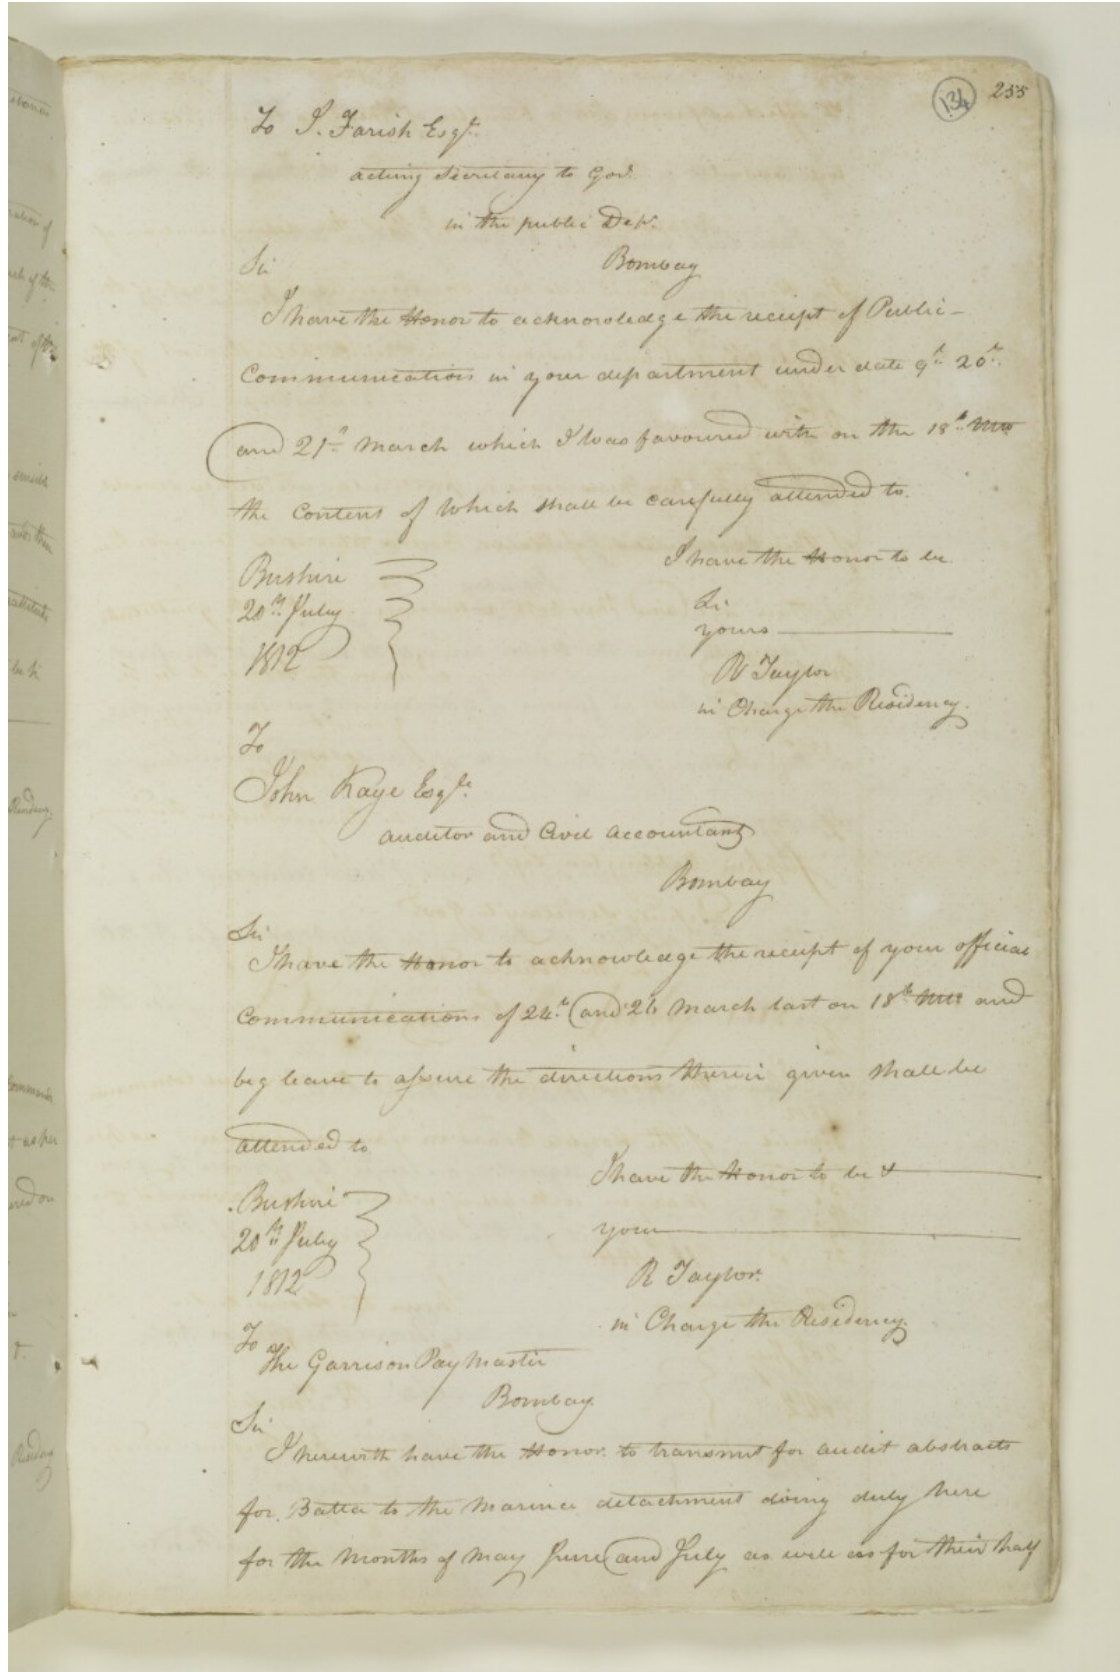 134 255
To J. Farish Esqr.
acting Secretary to Govt.
in the public Dept.
Bombay
Sir
I have the Honor to acknowledge the receipt of Public
Communications in your department under date 9th 20th
and 21st March which I was favoured with on the 18th
the contents of which shall be carefully attended to.
I have the Honor to be
Bushire
Sir
20th July
yours
1812
R Taylor
in Charge the Residency.
To
John Kaye Esqre.
auditor and Civil Accountant
Bombay
Sir
I have the Honor to acknowledge the receipt of your official
Communications of 24th and 26 March last on 18th and
beg leave to assure the directions therein given shall be
attended to
I have the Honor to be &
Bushire
your
20th July
1812
R Taylor.
in Charge the Residency.
To
The Garrison Pay Master
Bombay.
Sir
I herewith have the Honor to transmit for audit abstracts
for Batta to the Marine detachment doing duty here
for the Months of May June and July as well as for their half